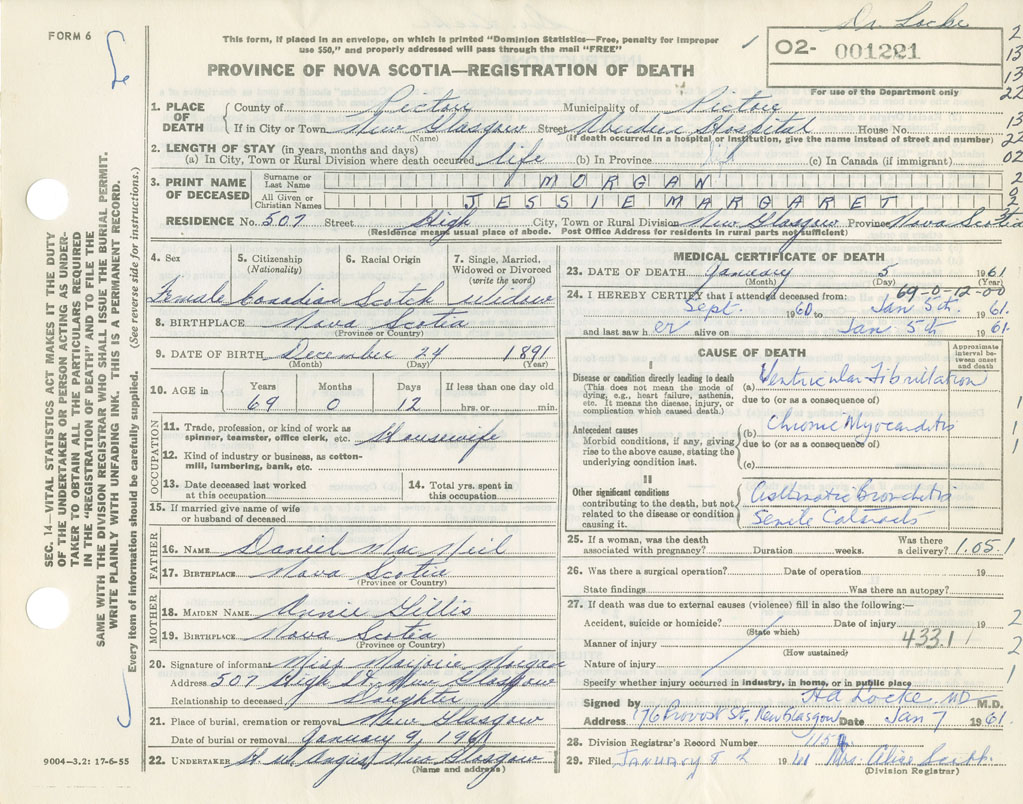 Dr. Locke
FORM 6
This form, if placed in an envelope, on which is printed "Dominion Statistics—Free, penalty for improper
use $50," and properly addressed will pass through the mail "FREE"
02- 001221
For use of the Department only
PROVINCE OF NOVA SCOTIA—REGISTRATION OF DEATH
1. PLACE OF DEATH { County of Pictou Municipality of Pictou
If in City or Town New Glasgow Street Aberdeen Hospital House No.
(Name) (If death occurred in a hospital or institution, give the name instead of street and number)
2. LENGTH OF STAY (in years, months and days)
(a) In City, Town or Rural Division where death occurred life (b) In Province (c) In Canada (if immigrant)
3. PRINT NAME OF DECEASED { Surname or Last Name MORGAN
All Given or Christian Names JESSIE MARGARET
RESIDENCE No. 507 Street High City, Town or Rural Division New Glasgow Province Nova Scotia
(Residence means usual place of abode. Post Office Address for residents in rural parts not sufficient)
4. Sex 5. Citizenship (Nationality) 6. Racial Origin 7. Single, Married, Widowed or Divorced (write the word)
Female Canadian Scotch Widow
8. BIRTHPLACE Nova Scotia
(Province or Country)
9. DATE OF BIRTH December 24 1891
(Month) (Day) (Year)
10. AGE in Years Months Days If less than one day old
69 0 12 hrs. or min.
OCCUPATION
11. Trade, profession, or kind of work as spinner, teamster, office clerk, etc. Housewife
12. Kind of industry or business, as cotton-mill, lumbering, bank, etc.
13. Date deceased last worked at this occupation 14. Total yrs. spent in this occupation
15. If married give name of wife or husband of deceased
FATHER
16. NAME Daniel MacNeil
17. BIRTHPLACE Nova Scotia
(Province or Country)
MOTHER
18. MAIDEN NAME Annie Gillis
19. BIRTHPLACE Nova Scotia
(Province or Country)
20. Signature of informant Miss Marjorie Morgan
Address 507 High St. New Glasgow
Relationship to deceased Daughter
21. Place of burial, cremation or removal New Glasgow
Date of burial or removal January 9, 1961
22. UNDERTAKER H. W. Angus, New Glasgow
(Name and address)
MEDICAL CERTIFICATE OF DEATH
23. DATE OF DEATH January 5 1961
(Month) (Day) (Year)
69-0-12-0-0
24. I HEREBY CERTIFY that I attended deceased from:
Sept. 1960 to Jan 5th. 1961.
and last saw her alive on Jan 5th 1961.
CAUSE OF DEATH
Approximate interval between onset and death
I
Disease or condition directly leading to death
(This does not mean the mode of dying, e.g., heart failure, asthenia, etc. It means the disease, injury, or complication which caused death.)
(a) Ventricular Fibrillation
due to (or as a consequence of)
Antecedent causes
Morbid conditions, if any, giving rise to the above cause, stating the underlying condition last.
(b) Chronic Myocarditis
due to (or as a consequence of)
(c)
II
Other significant conditions
contributing to the death, but not related to the disease or condition causing it.
Asthmatic Bronchitis
Senile Cataracts
25. If a woman, was the death associated with pregnancy? Duration weeks. Was there a delivery? 1.05.1
26. Was there a surgical operation? Date of operation 19
State findings Was there an autopsy?
27. If death was due to external causes (violence) fill in also the following:—
Accident, suicide or homicide? Date of injury 19
(State which)
Manner of injury 433.1
(How sustained)
Nature of injury
Specify whether injury occurred in industry, in home, or in public place
Signed by H A Locke, MD M.D.
Address 176 Provost St., New Glasgow Date Jan 7 1961.
28. Division Registrar's Record Number 1154
29. Filed JANUARY 8 2 1961 Mrs. Alice Smith
(Division Registrar)
9004—3.2: 17-6-55
SEC. 14—VITAL STATISTICS ACT MAKES IT THE DUTY
OF THE UNDERTAKER OR PERSON ACTING AS UNDER-
TAKER TO OBTAIN ALL THE PARTICULARS REQUIRED
IN THE "REGISTRATION OF DEATH" AND TO FILE THE
SAME WITH THE DIVISION REGISTRAR WHO SHALL ISSUE THE BURIAL PERMIT.
WRITE PLAINLY WITH UNFADING INK. THIS IS A PERMANENT RECORD.
Every item of information should be carefully supplied. (See reverse side for instructions.)